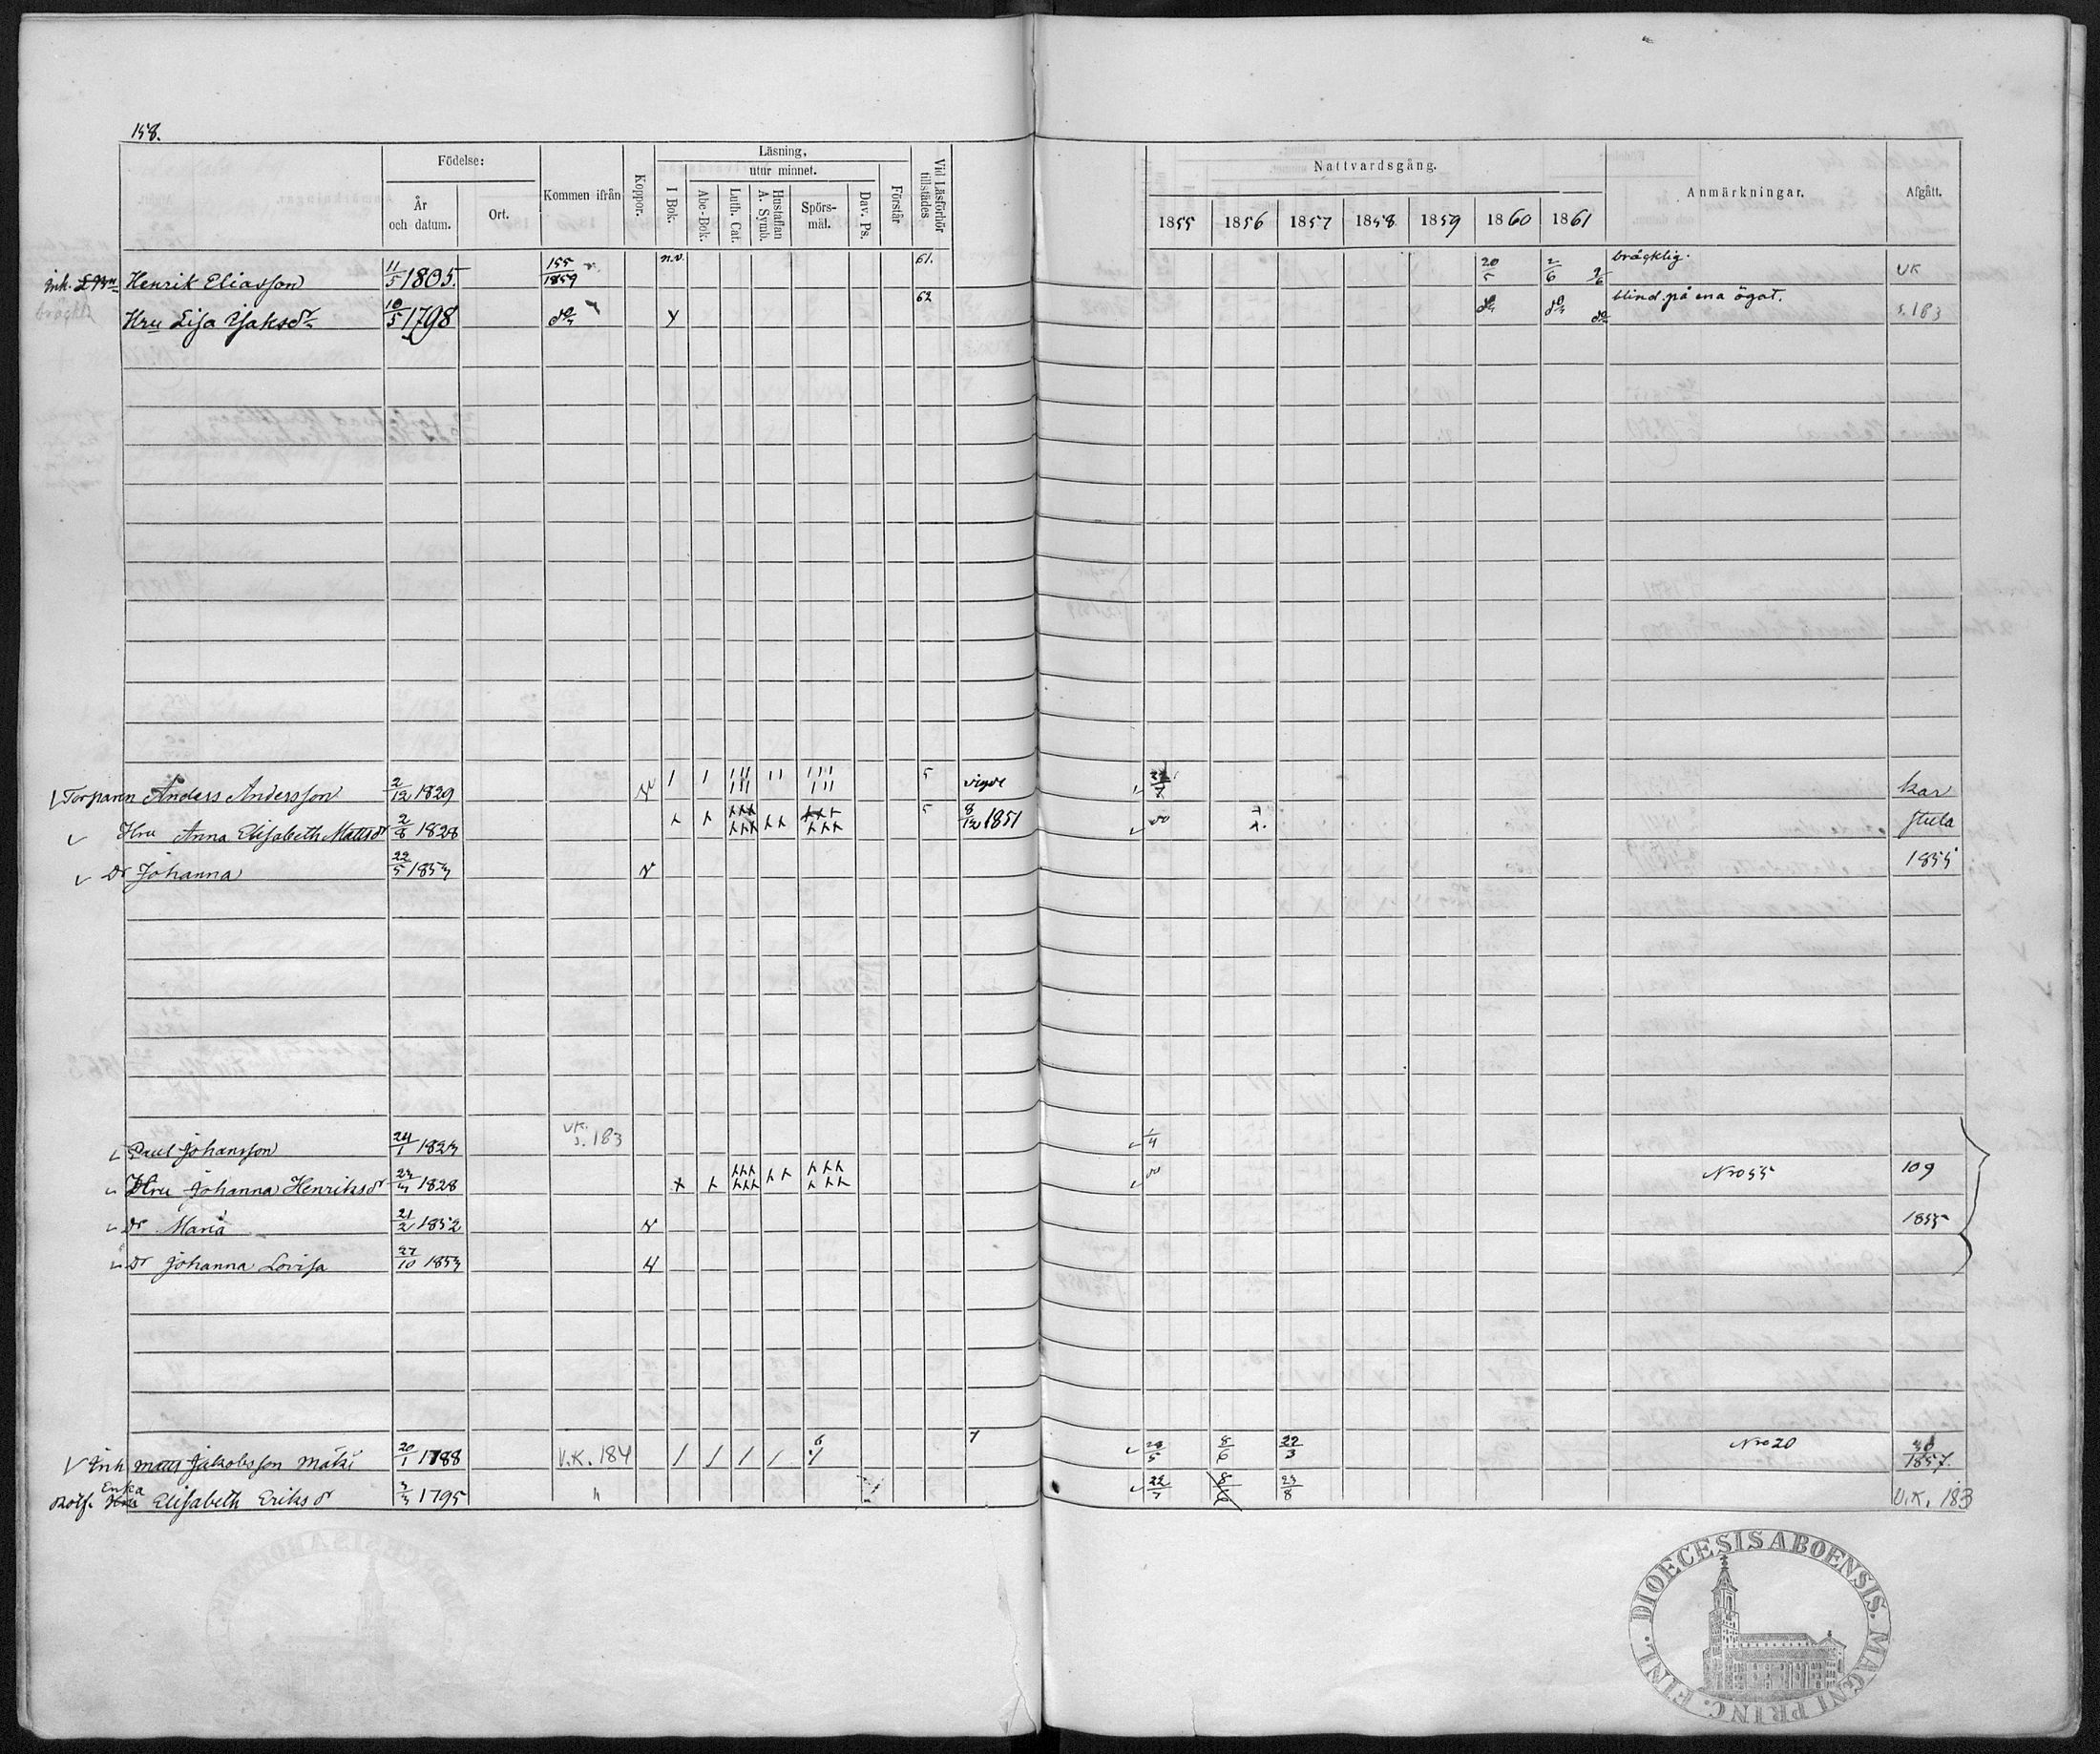 158.
Födelse:
År och datum.
Ort.
Kommen ifrån
Koppor.
Läsning,
utur minnet.
I Bok.
Abc-Bok.
Luth. Cat.
Hustaflan A. Symb.
Spörs-mål.
Dav. Ps.
Förstår
Vid Läsförhör tillstädes
Nattvardsgång.
1855 1856 1857 1858 1859 1860 1861
Anmärkningar.
Afgått.
Inh. Henrik Eliasson 11/5 1805. 155/1859 n.v. 61. 20/5 2/6 2/6 bräcklig. UK
bräckl. Hru Lisa Jaksdr 10/5 1798 do Y 62 do do do blind på ena ögat. s. 183
Torparen Anders Andersson 2/12 1829 5 vigde kar
Hru Anna Elisabeth Mattsdr 2/8 1828 5 8/12 1851 do stula
Dr Johanna 22/5 1853 1855
Paul Johansson 24/1 1823 VK. s. 183 1/4
Hru Johanna Henriksdr 1828 do Nro 55 109
Dr Maria 21/2 1852 1855
Dr Johanna Lovisa 27/10 1853
Inh Matts Jakobsson Mäki 20/1 1788 V.K. 184 6 7 8/6 22/3 Nro 20 1857.
Enka
Hru Elisabeth Eriksdr 3/3 1795 " 8/6 23/8 V.K. 183
DIOECESIS ABOENSIS. MAGNI PRINC. FINL.